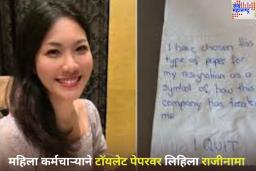 I have chosen this
type of paper
for my
resignation as a
symbol of how this
company has treated
me
I QUIT
महिला कर्मचाऱ्याने टॉयलेट पेपरवर लिहिला राजीनामा